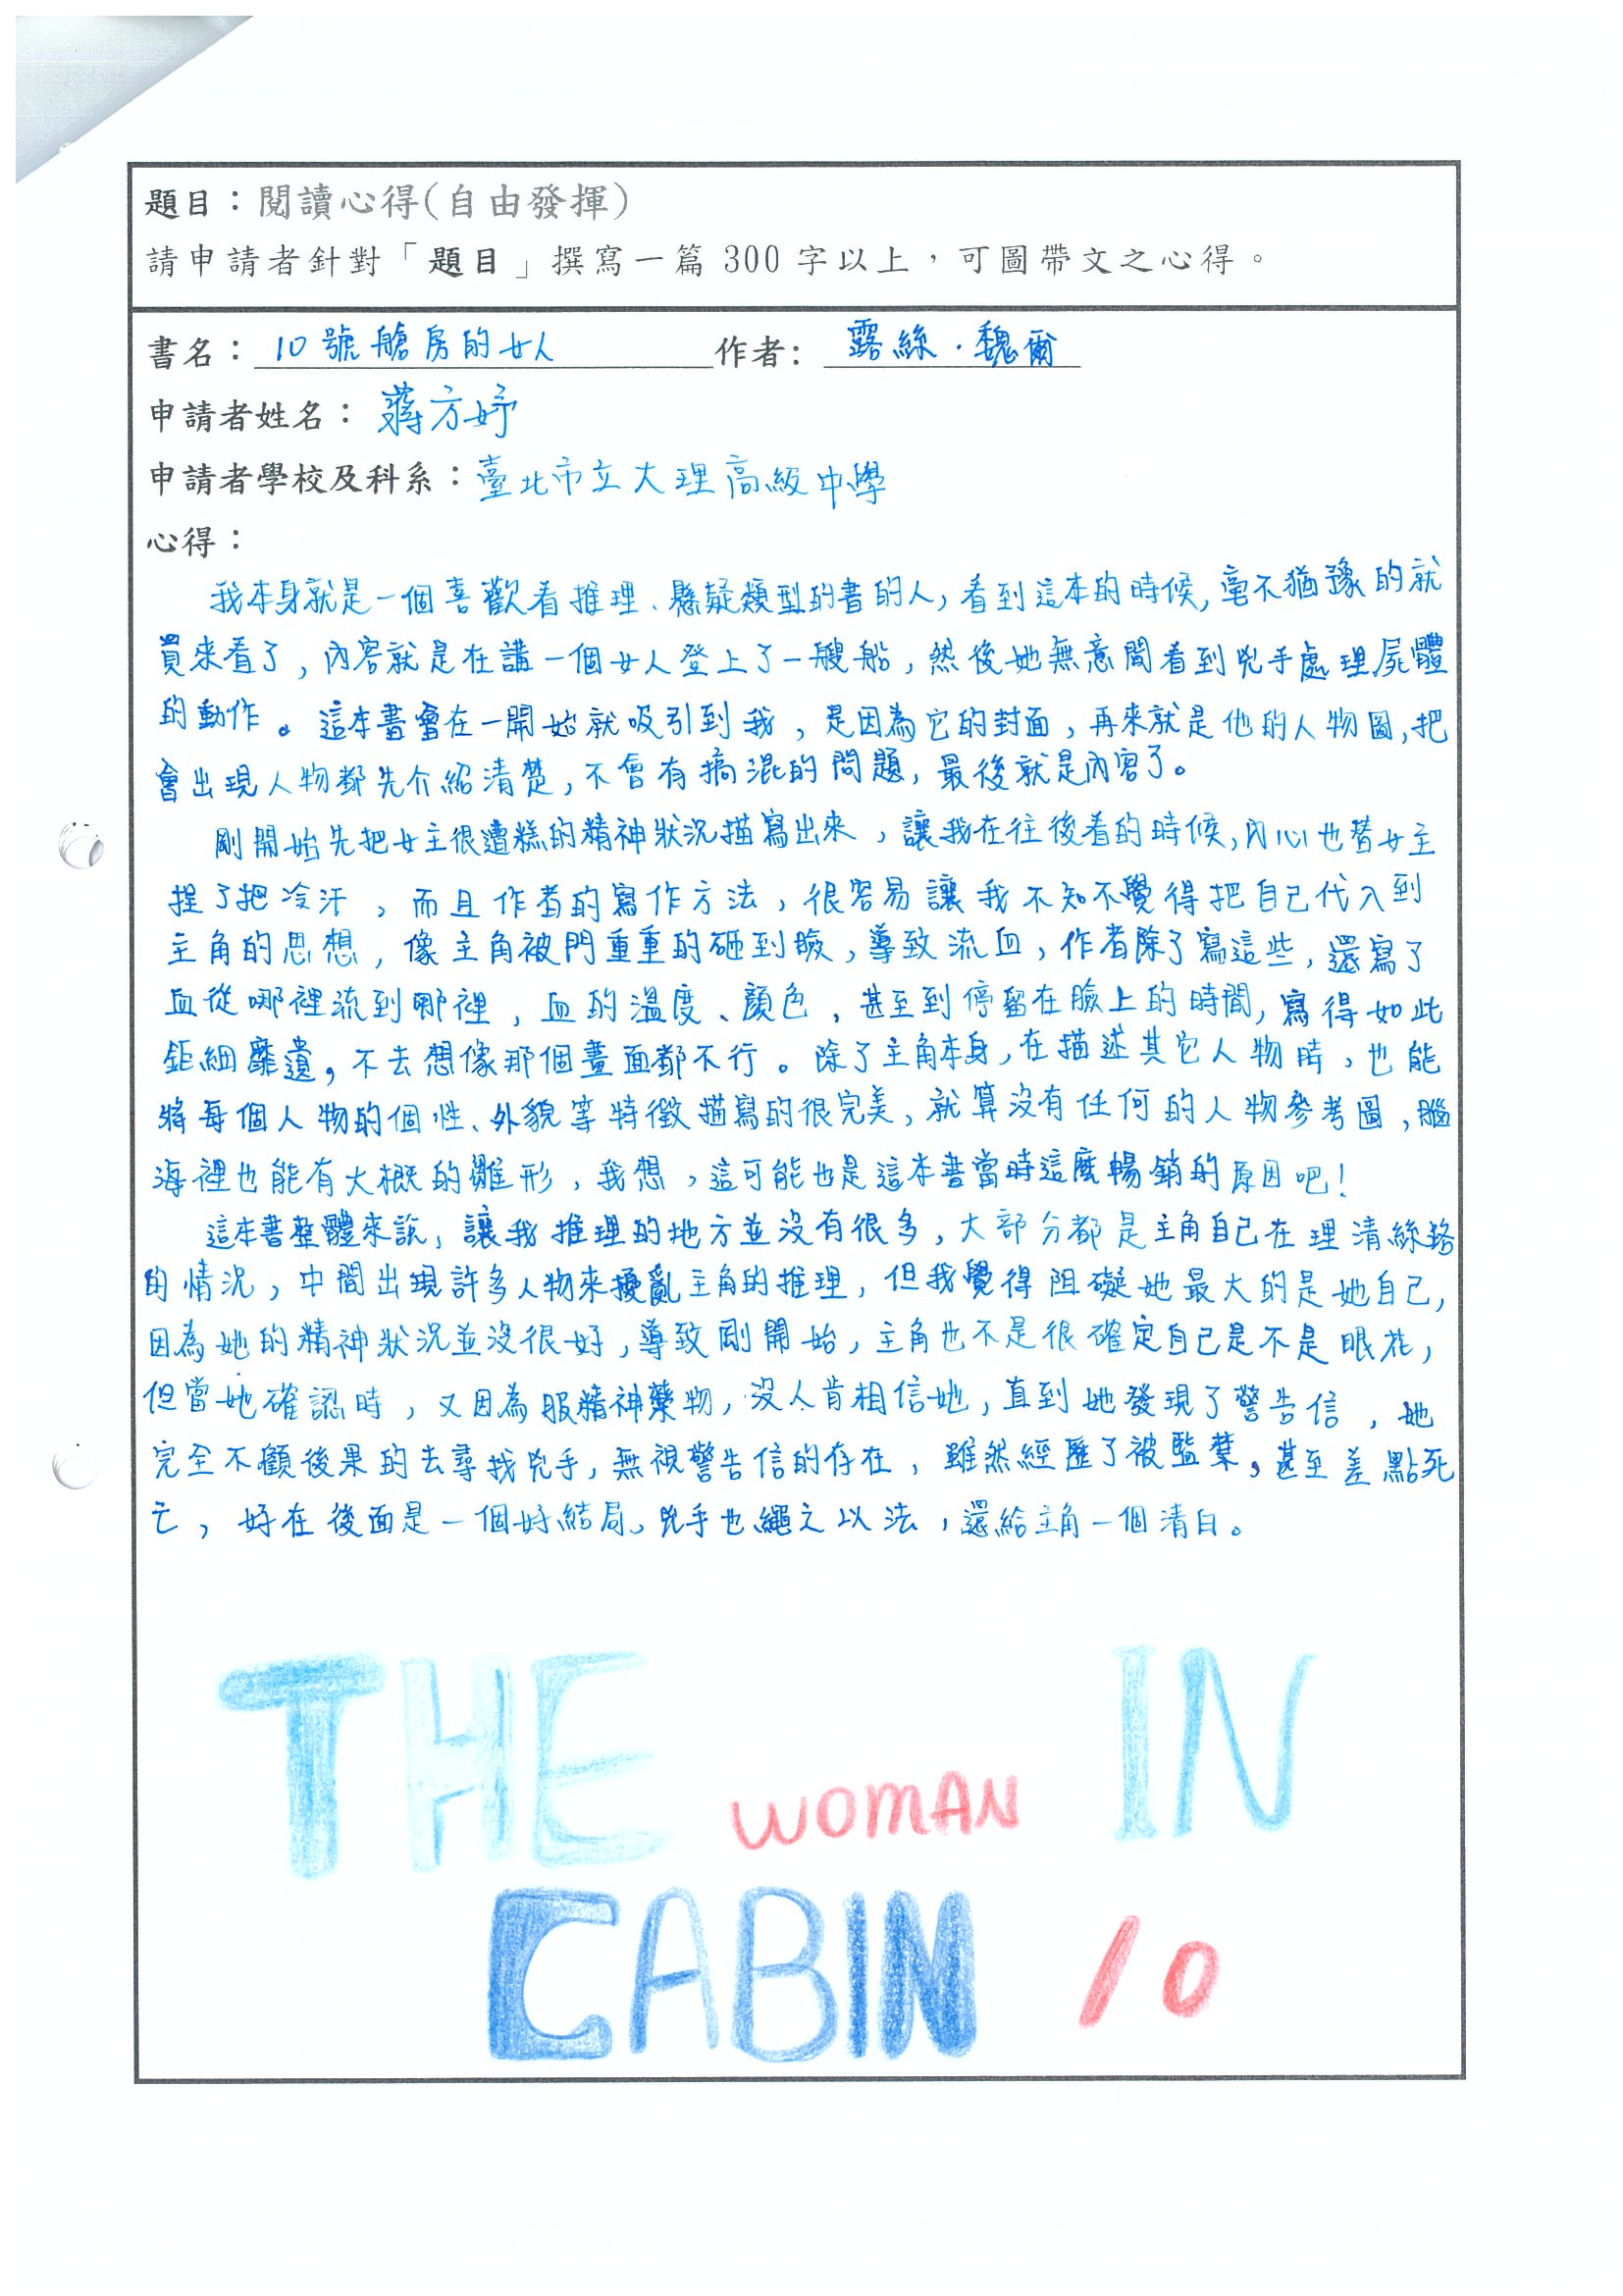 題目：閱讀心得(自由發揮)
請申請者針對「題目」撰寫一篇 300 字以上，可圖帶文之心得。
書名：10號艙房的女人 作者：露絲．魏爾
申請者姓名：蔣方妤
申請者學校及科系：臺北市立大理高級中學
心得：
我本身就是一個喜歡看推理、懸疑類型的書的人，看到這本的時候，毫不猶豫的就
買來看了，內容就是在講一個女人登上了一艘船，然後她無意間看到兇手處理屍體
的動作。這本書會在一開始就吸引到我，是因為它的封面，再來就是他的人物圖，把
會出現人物都先介紹清楚，不會有搞混的問題，最後就是內容了。
剛開始先把女主很遭糕的精神狀況描寫出來，讓我在往後看的時候，內心也替女主
捏了把冷汗，而且作者的寫作方法，很容易讓我不知不覺得把自己代入到
主角的思想，像主角被門重重的砸到臉，導致流血，作者除了寫這些，還寫了
血從哪裡流到哪裡，血的溫度、顏色，甚至到停留在臉上的時間，寫得如此
鉅細靡遺，不去想像那個畫面都不行。除了主角本身，在描述其它人物時，也能
將每個人物的個性、外貌等特徵描寫的很完美，就算沒有任何的人物參考圖，腦
海裡也能有大概的雛形，我想，這可能也是這本書當時這麼暢銷的原因吧！
這本書整體來說，讓我推理的地方並沒有很多，大部分都是主角自己在理清絲路
的情況，中間出現許多人物來擾亂主角的推理，但我覺得阻礙她最大的是她自己，
因為她的精神狀況並沒很好，導致剛開始，主角也不是很確定自己是不是眼花，
但當她確認時，又因為服精神藥物，沒人肯相信她，直到她發現了警告信，她
完全不顧後果的去尋找兇手，無視警告信的存在，雖然經歷了被監禁，甚至差點死
亡，好在後面是一個好結局，兇手也繩之以法，還給主角一個清白。
THE WOMAN IN
CABIN 10